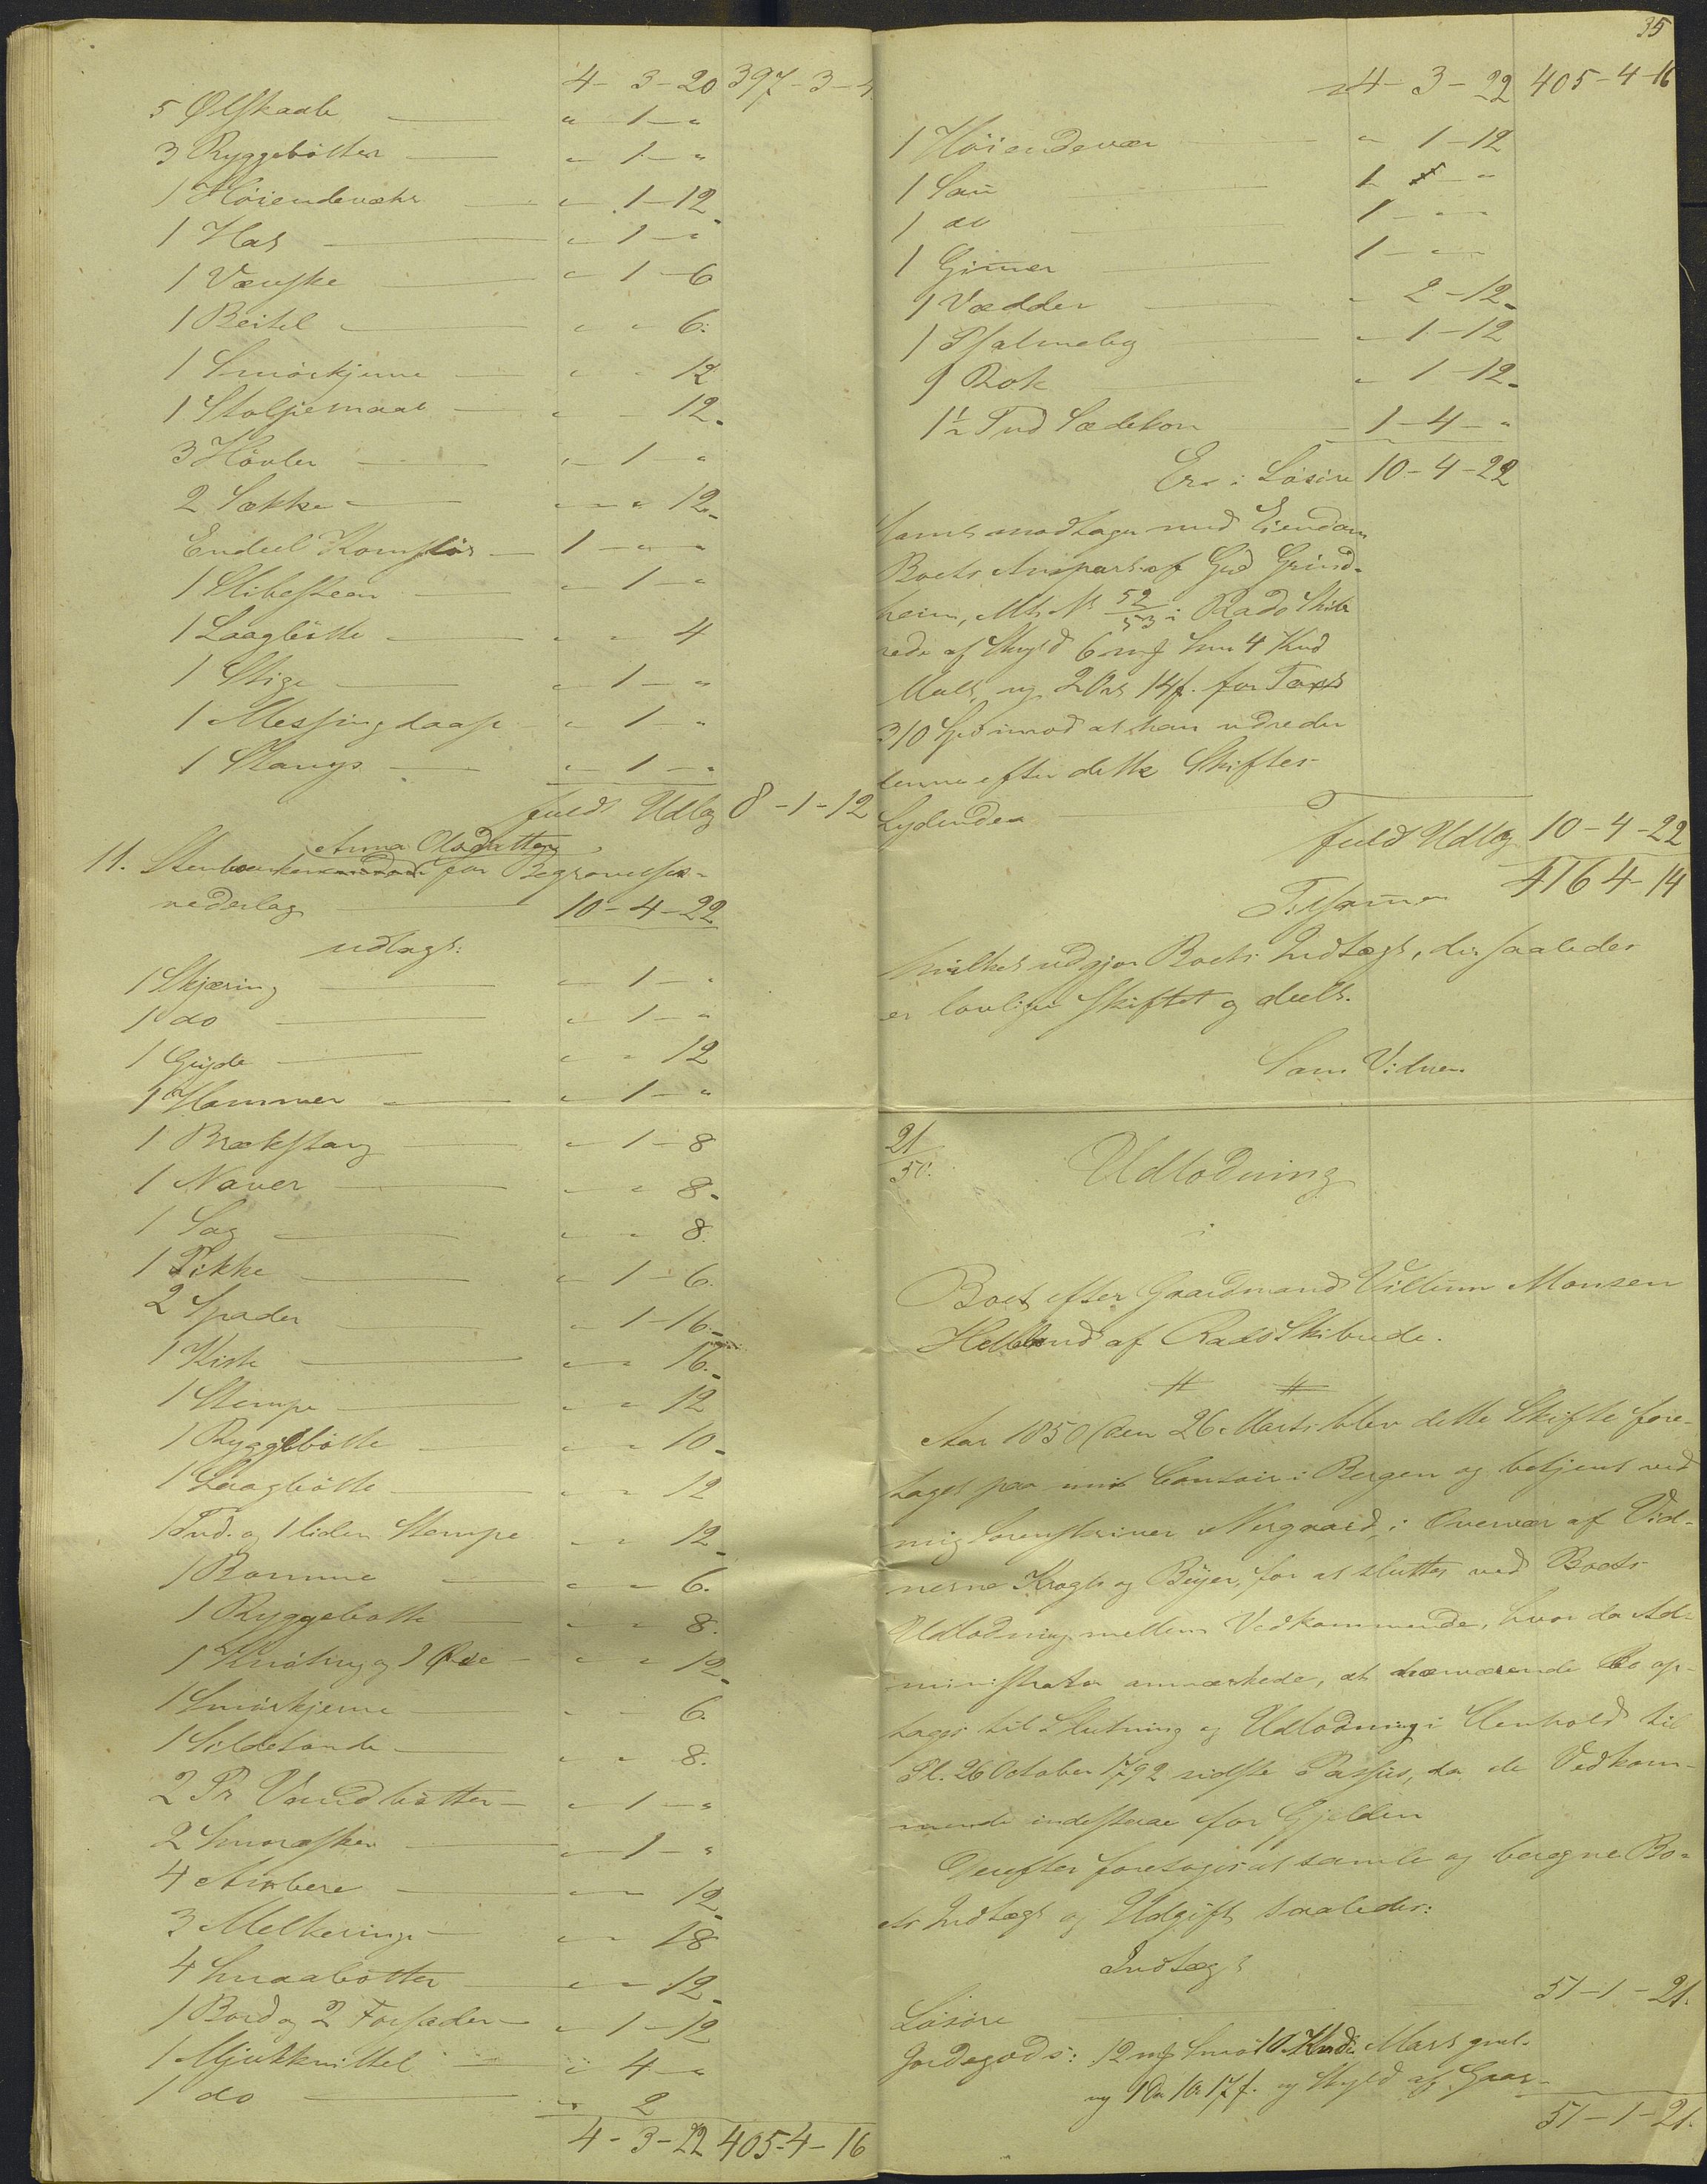 4 - 3 - 20 397 - 3 - 4
5 Ølskaale " 1 - "
3 Ryggebötter " 1 - "
1 Höiendevahr " 1 - 12
1 Hat " 1 - "
1 " 1 - 6
1 Beitel " " 6.
1 Smörkjerne " " 12
1 Stolpemaal " " 12.
3 Høvler " 1 - "
2 Sække " " 12.
Endeel Kornfør 1 - " - "
1 Slibesteen " 1 - "
1 Laagbötte " " 4
1 Stige " 1 - "
1 Messingdaase " 1 - "
1 Stamp " 1 - "
fuldt Udlæg 8 - 1 - 12
Anna Olsdatter
11. for Begravelses-
vederlag 10 - 4 - 22
udlagt:
1 Skjæring " 1 - "
1 do " 1 - "
1 Gryde " " 12
1 Hammer " 1 - "
1 Brækstang " 1 - 8
1 Naver " " 8.
1 Sag " " 8.
1 Pikke " 1 - 6.
2 Spader " 1 - 16.
1 Kiste " " 16.
1 Stampe " " 12
1 Ryggebötte " " 10.
1 Laagbötte " " 12
1 Tud. og 1 liden Stampe " " 12.
1 Bomme " " 6.
1 Ryggebøtte " " 8.
1 og 1 Øxe " " 12.
1 Smörkjerne " " 6.
1 Sildetønde " " 8.
2 Pr Vandbøtter " 1 - "
2 Smøræsker " 1 - "
4 Ambere " " 12.
3 Melkeringe " " 18
4 Smaabøtter " " 12.
1 Bord og 2 Forsæder " 1 - 12
1 " 4 - "
1 do " 2
4 - 3 - 22 405 - 4 - 16
35
4 - 3 - 22 405 - 4 - 16
1 Höiendevær " 1 - 12
1 Sau 1 - " - "
1 do 1 - " - "
1 Gimmer 1 - " - "
1 Vædder " 2 - 12.
1 Psalmebog " 1 - 12
1 Rok " 1 - 12.
1½ Tud Sædekorn 1 - 4 - "
Er i Løsøre 10 - 4 - 22
samt modtager med Eiendom
Boets Anpart af Grd Grind-
heim, Mt. N 52/53 i Radö Skib
rede af Skyld 6 mrk Smr 4 Knd
Malt, ny 2 Ort 14 f. for Taxt
310 Spd imod at han udreder
denne efter dette Skiftes
Lydende
fuldt Udlæg 10 - 4 - 22
Tilsammen 416 4 - 14
hvilket udgjør Boets Indtægt, der saaledes
er lovligen skiftet og deelt.
Som Vidner
21/50. Udlodning
i
Boet efter Gaardmand Villum Monsen
Helland af Radö Skibrede.
Aar 1850 den 26 Marts blev dette Skifte fore-
taget paa mit Contoir i Bergen og betjent ved
mig Sorenskriver Nergaard, i Overvær af Vid-
nerne Krogh og Beyer, for at sluttes ved Boets
Udlodning mellem Vedkommende, hvor da Ad-
ministrator anmærkede, at nærværende Bo op-
tages til Slutning og Udlodning i Henhold til
Pl. 26 October 1792 sidste Passus, da de Vedkom-
mende indestaae for Gjelden
Derefter foretoges at samle og beregne Bo-
ets Indtægt og Udgift saaledes:
Indtægt
Løsøre 51 - 1 - 21.
Jordegods: 12 mrk Smør 10 Knd: Malt gml.
ny 1 Dr 1 Ort 17 f. og Skyld af Gaar-
51 - 1 - 21.